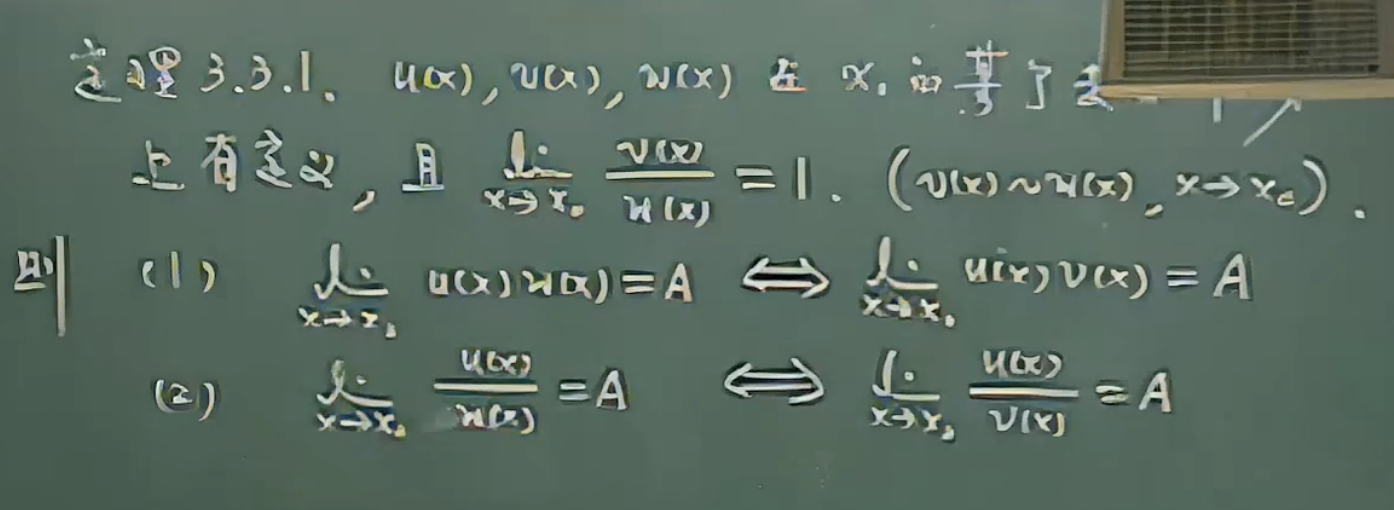 定理3.3.1. u(x), v(x), w(x) 在 x₀ 的某
上有定义, 且 lim_{x→x₀} v(x)/w(x) = 1. (v(x)~w(x), x→x₀).
则 (1) lim_{x→x₀} u(x)w(x)=A ⟺ lim_{x→x₀} u(x)v(x)=A
(2) lim_{x→x₀} u(x)/w(x) =A ⟺ lim_{x→x₀} u(x)/v(x) =A